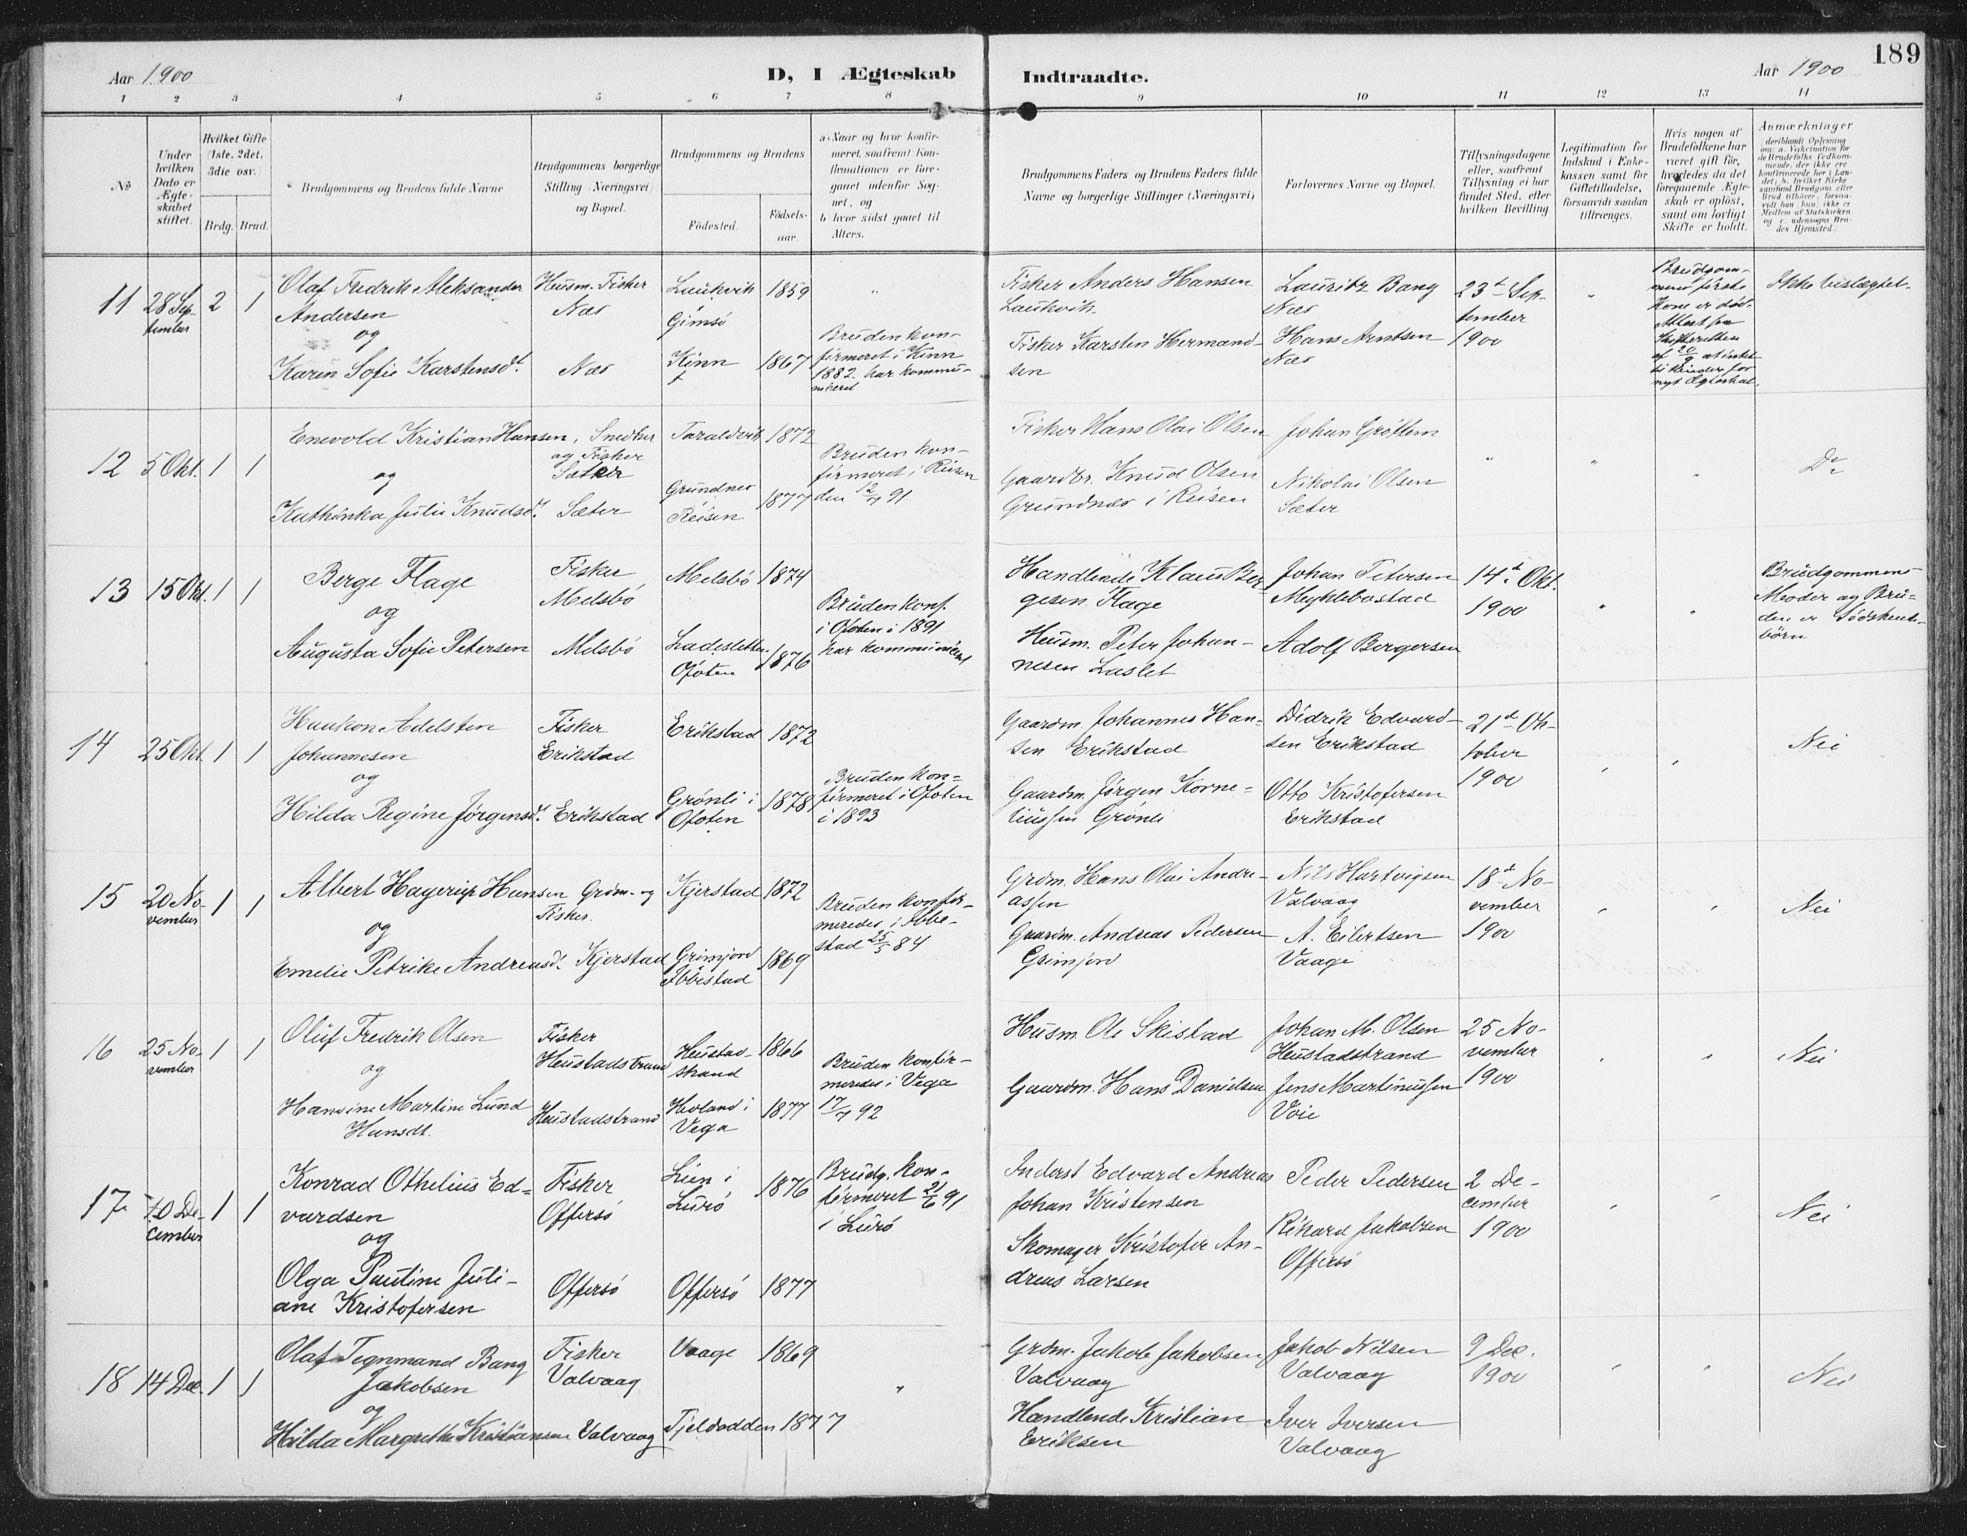 189
Aar 1900
D, I Ægteskab
Indtraadte.
Aar 1900
1 2 3 4 5 6 7 8 9 10 11 12 13 14
No
Under
hvilken
Dato er
Ægte-
skabet
stiftet.
Hvilket Gifte
(1ste, 2det,
3die osv.)
Brdg. Brud.
Brudgommens og Brudens fulde Navne
Brudgommens borgerlige
Stilling (Næringsvei)
og Bopæl.
Brudgommens og Brudens
Fødested.
Fødsels-
aar.
a) Naar og hvor konfir-
meret, saafremt Kon-
firmationen er fore-
gaaet udenfor Sog-
net, og
b) hvor sidst gaaet til
Alters.
Brudgommens Faders og Brudens Faders fulde
Navne og borgerlige Stillinger (Næringsvei)
Forlovernes Navne og Bopæl.
Tillysningsdagene
eller, saafremt
Tillysning ei har
fundet Sted, efter
hvilken Bevilling.
Legitimation for
Indskud i Enke-
kassen samt for
Giftetilladelse,
forsaavidt saadan
tiltrænges.
Hvis nogen af
Brudefolkene har
været gift før,
hvorledes da det
foregaaende Ægte-
skab er opløst,
samt om lovligt
Skifte er holdt.
Anmærkninger
11
28 Sep-
tember
2 1
Olaf Fredrik Aleksander
Andersen
og
Karen Sofie Karstensdt.
Husm. Fisker
Næs
Næs
Laukvik
Gimsø
Kinn
1859
1867
Bruden kon-
firmeret i Kinn
1882. har kommu-
niceret
Fisker Anders Hansen
Laukvik.
Fisker Karsten Hermand-
sen
Lauritz Bang
Næs
Hans Arntsen
Næs
23d Sep-
tember
1900
Brudgom-
mens første
Kone er død.
Attest fra
Skifteretten
af 20/9 at intet
er til hinder for
nyt Ægteskab.
Ikke beslægtet.
12
5 Okt.
1 1
Enevold Kristian Hansen,
og
Kathinka Julie Knudsdt.
Snedker
og Fisker
Sæter
Sæter
Taraldvik
Grundnes
Reisen
1872
1877
Bruden kon-
firmeret i Reisen
den 12/7 91
Fisker Hans Olai Olsen
Gaardbr. Knud Olsen
Grundnæs i Reisen
Johan Grøttem
Nikolai Olsen
Sæter
Do
13
15 Okt.
1 1
Berge Flage
og
Augusta Sofie Petersen
Fisker
Melsbö
Melsbö
Melsbö
Ladesletten
Ofoten
1874
1876
Bruden konf.
i Ofoten i 1891
har kommuniceret
Handlende Klaus Ber
gesen Flage
Husm. Peter Johan-
nesen Laslet
Johan Petersen
Myklebostad
Adolf Bergersen
14d Okt.
1900
Brudgommens
Moder og Bru-
den er Södskende-
börn
14
25 Okt.
1 1
Haakon Adelsten
Johannesen
og
Hilda Regine Jørgensdt.
Fisker
Erikstad
Erikstad
Erikstad
Grønli i
Ofoten
1872
1878
Bruden kon-
firmeret i Ofoten
i 1893
Gaardm. Johannes Han-
sen Erikstad
Gaardm. Jørgen Korne-
liussen Grønli
Didrik Edvard-
sen Erikstad
Otto Kristofersen
Erikstad
21d Ok-
tober
1900
Nei
15
20 No-
vember
1 1
Albert Hagerup Hansen
og
Emelie Petrike Andreasdt.
Grdm. og
Fisker.
Kjerstad
Kjerstad
Grimjord
Ibbestad
1872
1869
Bruden konfir-
meredes i Ibbe-
stad 25/5 84
Grdm. Hans Olai Andre-
assen
Gaardm. Andreas Pedersen
Grimjord
Nils Hartvigsen
Valvaag
A. Eilertsen
Vaage
18d No-
vember
1900
Nei
16
25 No-
vember
1 1
Oluf Fredrik Olsen
og
Hansine Martine Lund
Hansdt.
Fisker
Heustadstrand
Heustadstrand
Heustad-
strand
Hovland i
Vega
1866
1877
Bruden konfir-
meredes i Vega
17/7 92
Husm. Ole Skistad
Gaardm. Hans Danielsen
Johan M. Olsen
Heustadstrand
Jens Martinussen
Voie
25 No-
vember
1900
Nei
17
10 De-
cember
1 1
Konrad Othelius Ed-
vardsen
og
Olga Pauline Juli-
ane Kristofersen
Fisker
Offersö
Offersö
Lien i
Lurö
Offersö
1876
1877
Brudg. kon-
firmeret 21/6 91
i Lurö
Inderst Edvard Andreas
Johan Kristensen
Skomager Kristofer An-
dreas Larsen
Peder Pedersen
Rikard Jakobsen
Offersö
2 De-
cember
1900
Nei
18
14 Dec.
1 1
Olaf Tegnmand Bang
Jakobsen
og
Hilda Margrethe Kristiansen
Fisker
Valvaag
Valvaag
Vaage
Fjeldodden
1869
1877
Grdm. Jakob Jakobsen
Valvaag
Handlende Kristian
Eriksen
Jakob Nilsen
Valvaag
Iver Iversen
Valvaag
9 Dec.
1900
Nei